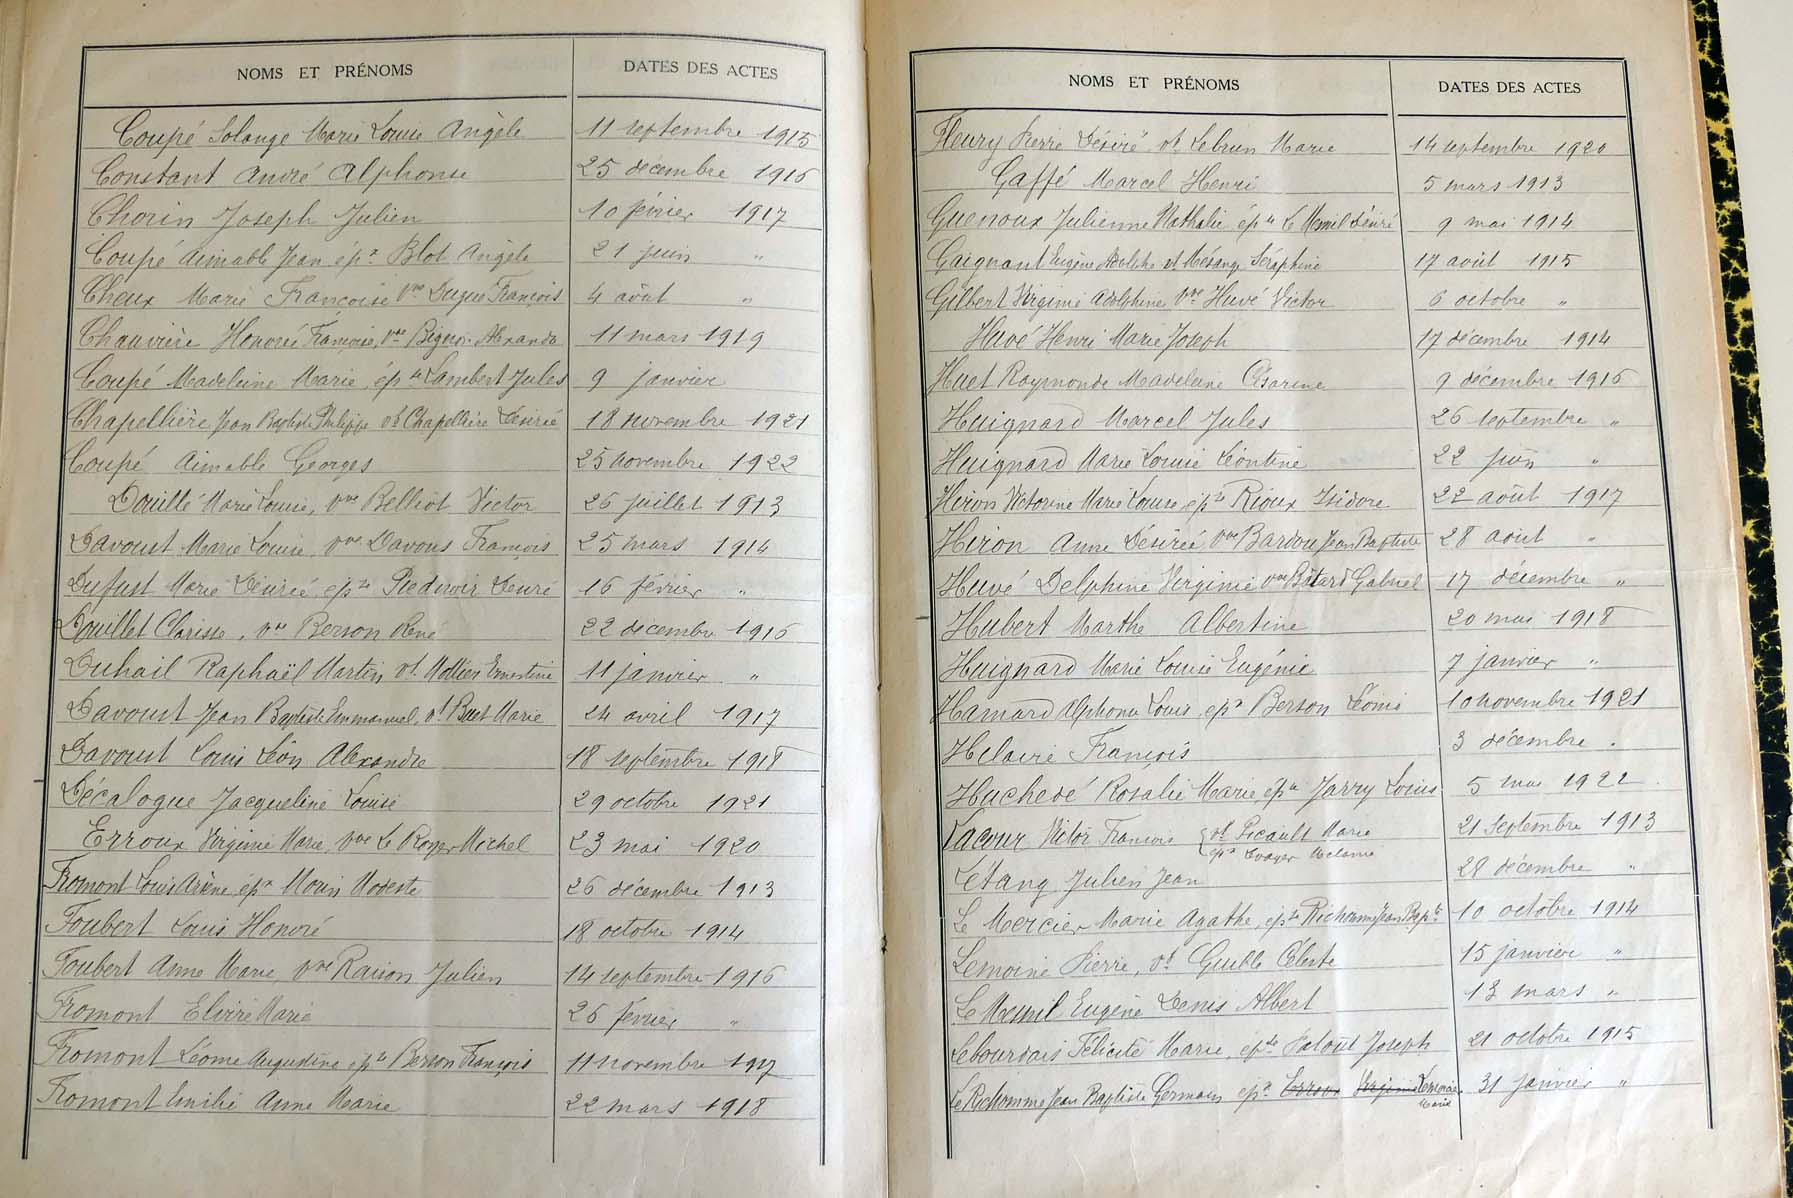 NOMS ET PRÉNOMS DATES DES ACTES
Coupé Solange Marie Louise Angèle 11 septembre 1915
Constant André Alphonse 25 décembre 1916
Chorin Joseph Julien 10 février 1917
Coupé Aimable Jean ép.x Blot Angèle 21 juin "
Cheux Marie Françoise Vve Dugué François 4 août "
Chauvière Honoré Françoise, vve Alexandre 11 mars 1919
Coupé Madeleine Marie, épse Lambert Jules 9 janvier
Chapellière Jean Baptiste Philippe vf Chapellière Désirée 18 novembre 1921
Coupé Aimable Georges 25 novembre 1922
Douillé Marie Louise, vve Belliot Victor 26 juillet 1913
Davoust Marie Louise, vve Davous François 25 mars 1914
Dufust Marie Désirée épse Désiré 16 février "
Douillet Clarisse, vve Berson René 22 décembre 1916
Duhail Raphaël Martin vf Mottier Ernestine 11 janvier "
Davoust Jean Baptiste Emmanuel, vf Marie 24 avril 1917
Davoust Louis Léon Alexandre 18 septembre 1918
Décalogue Jacqueline Louise 29 octobre 1921
Erroux Virginie Marie, vve Le Royer Michel 23 mai 1920
Fromont Louis Arène, épx Morin Modeste 26 décembre 1913
Foubert Louis Honoré 18 octobre 1914
Foubert Anne Marie, vve Raison Julien 14 septembre 1916
Fromont Elvire Marie 26 février "
Fromont Léonie Augustine épse Berson François 11 novembre 1917
Fromont Emilie Anne Marie 22 mars 1918
NOMS ET PRÉNOMS DATES DES ACTES
Fleury Pierre Désiré vf Lebrun Marie 14 septembre 1920
Gaffé Marcel Henri 5 mars 1913
Guenoux Julienne Nathalie épse Le Mesnil Désiré 9 mai 1914
Gaignant Eugène Adolphe vf Mésange Séraphine 17 août 1915
Gilbert Virginie Adolphine Vve Huvé Victor 6 octobre "
Huvé Henri Marie Joseph 17 décembre 1914
Huet Raymonde Madeleine Césarine 9 décembre 1916
Huignard Marcel Jules 26 septembre "
Huignard Marie Louise Léontine 22 juin "
Hiron Victorine Marie Louise épse Rioux Isidore 22 août 1917
Hiron Anne Désirée Vve Bardou Jean Baptiste 28 août "
Huvé Delphine Virginie vve Bâtard Gabriel 17 décembre "
Hubert Marthe Albertine 20 mai 1918
Huignard Marie Louise Eugénie 7 janvier "
Hamard Alphonse Louis, épx Berson Léonie 10 novembre 1921
Hilaire François 3 décembre .
Hachedé Rosalie Marie, épse Jarry Louis 5 mai 1922
Lacour Victor François { vf Picault Marie 21 septembre 1913
épx
Létang Julien Jean 28 décembre "
Le Mercier Marie Agathe, épse Richomme Jean Bapte 10 octobre 1914
Lemoine Pierre, vf Guible Céleste 15 janvier "
Le Mesnil Eugène Denis Albert 13 mars "
Lebourdais Félicité Marie, épse Patout Joseph 21 octobre 1915
Le Richomme Jean Baptiste Germain épx Erroux Virginie Lemoine 31 janvier "
Marie